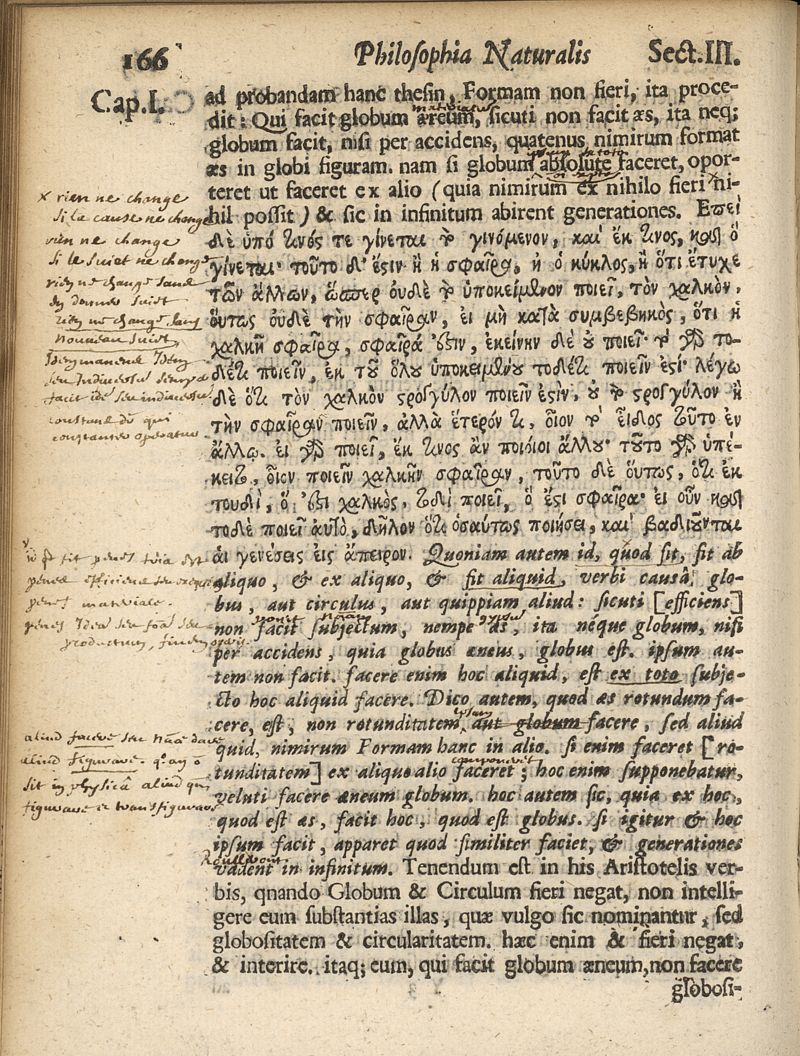 166 Philosophia Naturalis Sect.III.
Cap.I.
ad probandam hanc thesin, Formam non fieri, ita proce-
dit: Qui facit globum æreum, sicuti non facit æs, ita neq;
globum facit, nisi per accidens, quatenus nimirum format
æs in globi figuram. nam si globum absolute faceret, opor-
teret ut faceret ex alio (quia nimirum ex nihilo fieri ni-
hil possit) & sic in infinitum abirent generationes. Ἐπεὶ
δὲ ὑπό τινός τε γίνεται τὸ γινόμενον, καὶ ἔκ τινος, καὶ ὃ
γίνεται· τοῦτο δ' ἐςὶν ἢ ἡ σφαῖρα, ἢ ὁ κύκλος, ἢ ὅτι ἔτυχε
τῶν ἄλλων, ὥσπερ οὐδὲ τὸ ὑποκείμενον ποιεῖ, τὸν χαλκὸν,
οὕτως οὐδὲ τὴν σφαῖραν, εἰ μὴ κατὰ συμβεβηκὸς, ὅτι ἡ
χαλκῆ σφαῖρα, σφαῖρά ἐςιν, ἐκείνην δὲ οὐ ποιεῖ· τὸ γὰρ το-
δέτι ποιεῖν, ἐκ τοῦ ὅλου ὑποκειμένου τοδέτι ποιεῖν ἐςί· λέγω
δὲ ὅτι τὸν χαλκὸν ςρογγύλον ποιεῖν ἐςὶν, οὐ τὸ ςρογγύλον ἢ
τὴν σφαῖραν ποιεῖν, ἀλλὰ ἕτερόν τι, οἷον τὸ εἶδος τοῦτο ἐν
ἄλλῳ. εἰ γὰρ ποιεῖ, ἔκ τινος ἂν ποιοίοι ἄλλου· τοῦτο γὰρ ὑπέ-
κειτο, οἷον ποιεῖν χαλκῆν σφαῖραν, τοῦτο δὲ οὕτως, ὅτι ἐκ
τουδὶ, ὅ ἐςι χαλκὸς, τοδὶ ποιεῖ, ὅ ἐςι σφαῖρα· εἰ οὖν καὶ
τοδε ποιεῖ αὐτὸ, δῆλον ὅτι ὁσαύτως ποιήσει, καὶ βαδιοῦνται
αἱ γενέσεις εἰς ἄπειρον. Quoniam autem id, quod sit, sit ab
aliquo, & ex aliquo, & fit aliquid, verbi causâ, glo-
bus, aut circulus, aut quippiam aliud: sicuti [efficiens]
non facit subjectum, nempe æs, ita neque globum, nisi
per accidens, quia globus æneus, globus est. ipsum au-
tem non facit. facere enim hoc aliquid, est ex toto subje-
cto hoc aliquid facere. Dico autem, quod æs rotundum fa-
cere, est, non rotunditatem, aut globum facere, sed aliud
quid, nimirum Formam hanc in alio. si enim faceret [ro-
tunditatem] ex aliquo alio faceret; hoc enim supponebatur,
veluti facere æneum globum. hoc autem sic, quia ex hoc,
quod est æs, facit hoc, quod est globus. si igitur & hoc
ipsum facit, apparet quod similiter faciet, & generationes
vadent in infinitum. Tenendum est in his Aristotelis ver-
bis, qnando Globum & Circulum fieri negat, non intelli-
gere eum substantias illas, quæ vulgo sic nominantur, sed
globositatem & circularitatem. hæc enim & fieri negat,
& interire. itaq; eum, qui facit globum æneum, non facere
globosi-
x rien ne change
si la cause ne change
rien ne change
si le suiet ne change
rien ne change sans
rien ne change sans
nouveau suiet
constans operatur
aliud facere
aliud figurare
sit in physicâ aliud
figurare et transfigurare